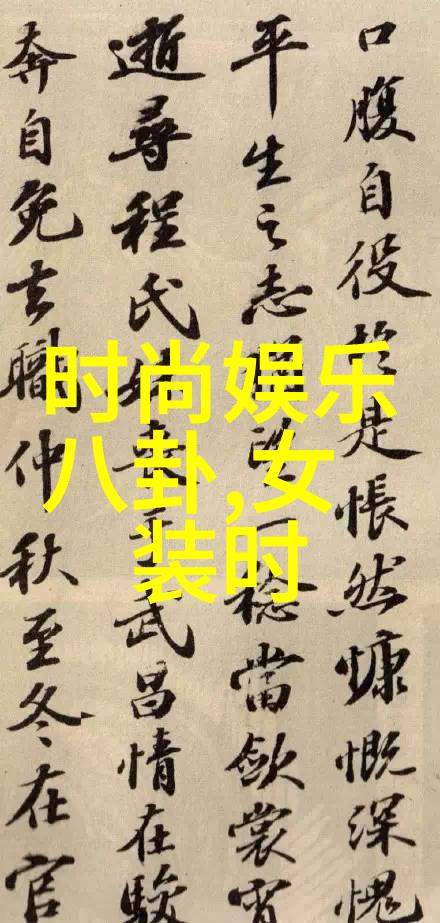 口腹自役於是悵然慷慨深愧
平生之志一稔當歛裳宵
逝尋程氏妹喪于武昌情在駿
奔自免去職仲秋至冬在官
时尚娱乐
八卦,女
装时